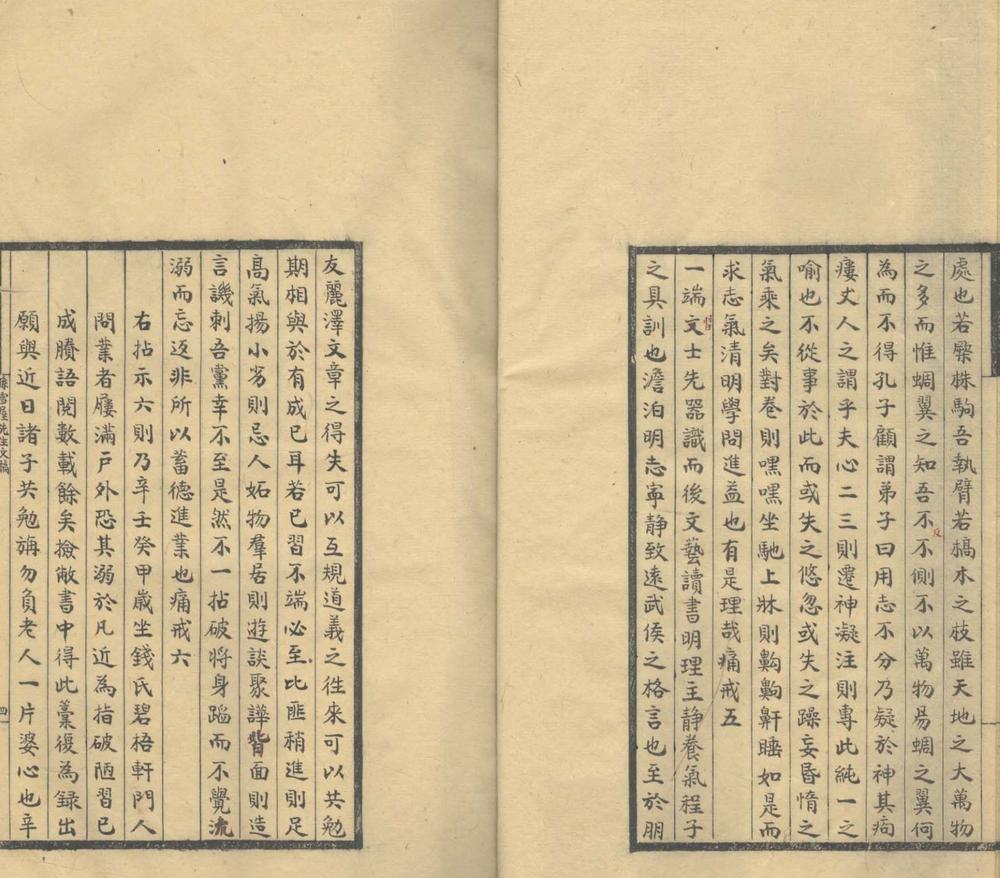 處也若橜株駒吾執臂若槁木之枝雖天地之大萬物
之多而惟蜩翼之知吾不反不側不以萬物易蜩之翼何
為而不得孔子顧謂弟子曰用志不分乃疑於神其痀
瘻丈人之謂乎夫心二三則遷神凝注則專此純一之
喻也不從事於此而或失之悠忽或失之躁妄昏惰之
氣乘之矣對卷則嘿嘿坐馳上牀則齁齁鼾睡如是而
求志氣清明學問進益也有是理哉痛戒五
一端文士先器識而後文藝讀書明理主静養氣程子
之具訓也澹泊明志寧静致遠武侯之格言也至於朋
友麗澤文章之得失可以互規道義之徃來可以共勉
期相與於有成已耳若已習不端必至比匪稍進則足
高氣揚小劣則忌人妬物羣居則遊談聚譁背面則造
言譏刺吾黨幸不至是然不一拈破將身蹈而不覺流
溺而忘返非所以蓄德進業也痛戒六
右拈示六則乃辛壬癸甲歲坐錢氏碧梧軒門人
問業者屨滿戸外恐其溺於凡近為指破陋習已
成賸語閱數載餘矣撿敝書中得此藁復為録出
願與近日諸子共勉旃勿負老人一片婆心也辛
雪屋先生文稿
四